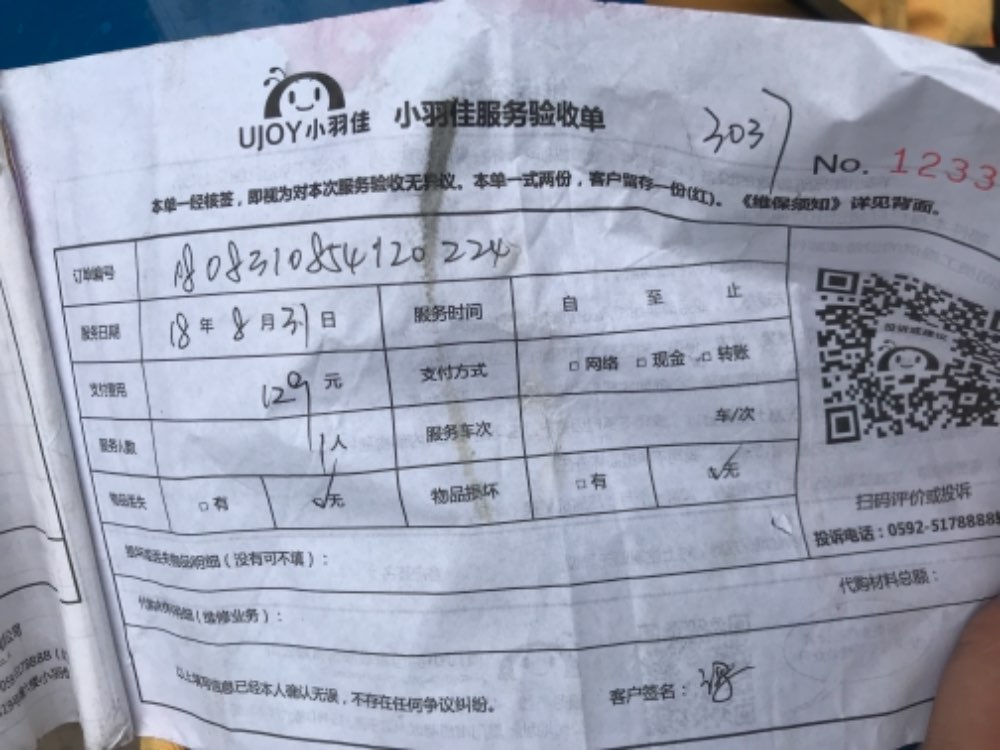 UJOY小羽佳 小羽佳服务验收单
303
No. 1233
本单一经核签，即视为对本次服务验收无异议。本单一式两份，客户留存一份(红)。《维保须知》详见背面。
订单编号 1808310854120224
服务日期 18 年 8 月 31 日 服务时间 自 至 止
支付费用 129 元 支付方式 □ 网络 □ 现金 □ 转账
服务人数 1 人 服务车次 车/次
物品丢失 □ 有 ☑ 无 物品损坏 □ 有 ☑ 无
投诉或建议
扫码评价或投诉
投诉电话：0592-5178888
损坏或丢失物品明细（没有可不填）：
代购材料明细（维修业务）： 代购材料总额：
以上填写信息已经本人确认无误，不存在任何争议纠纷。 客户签名：